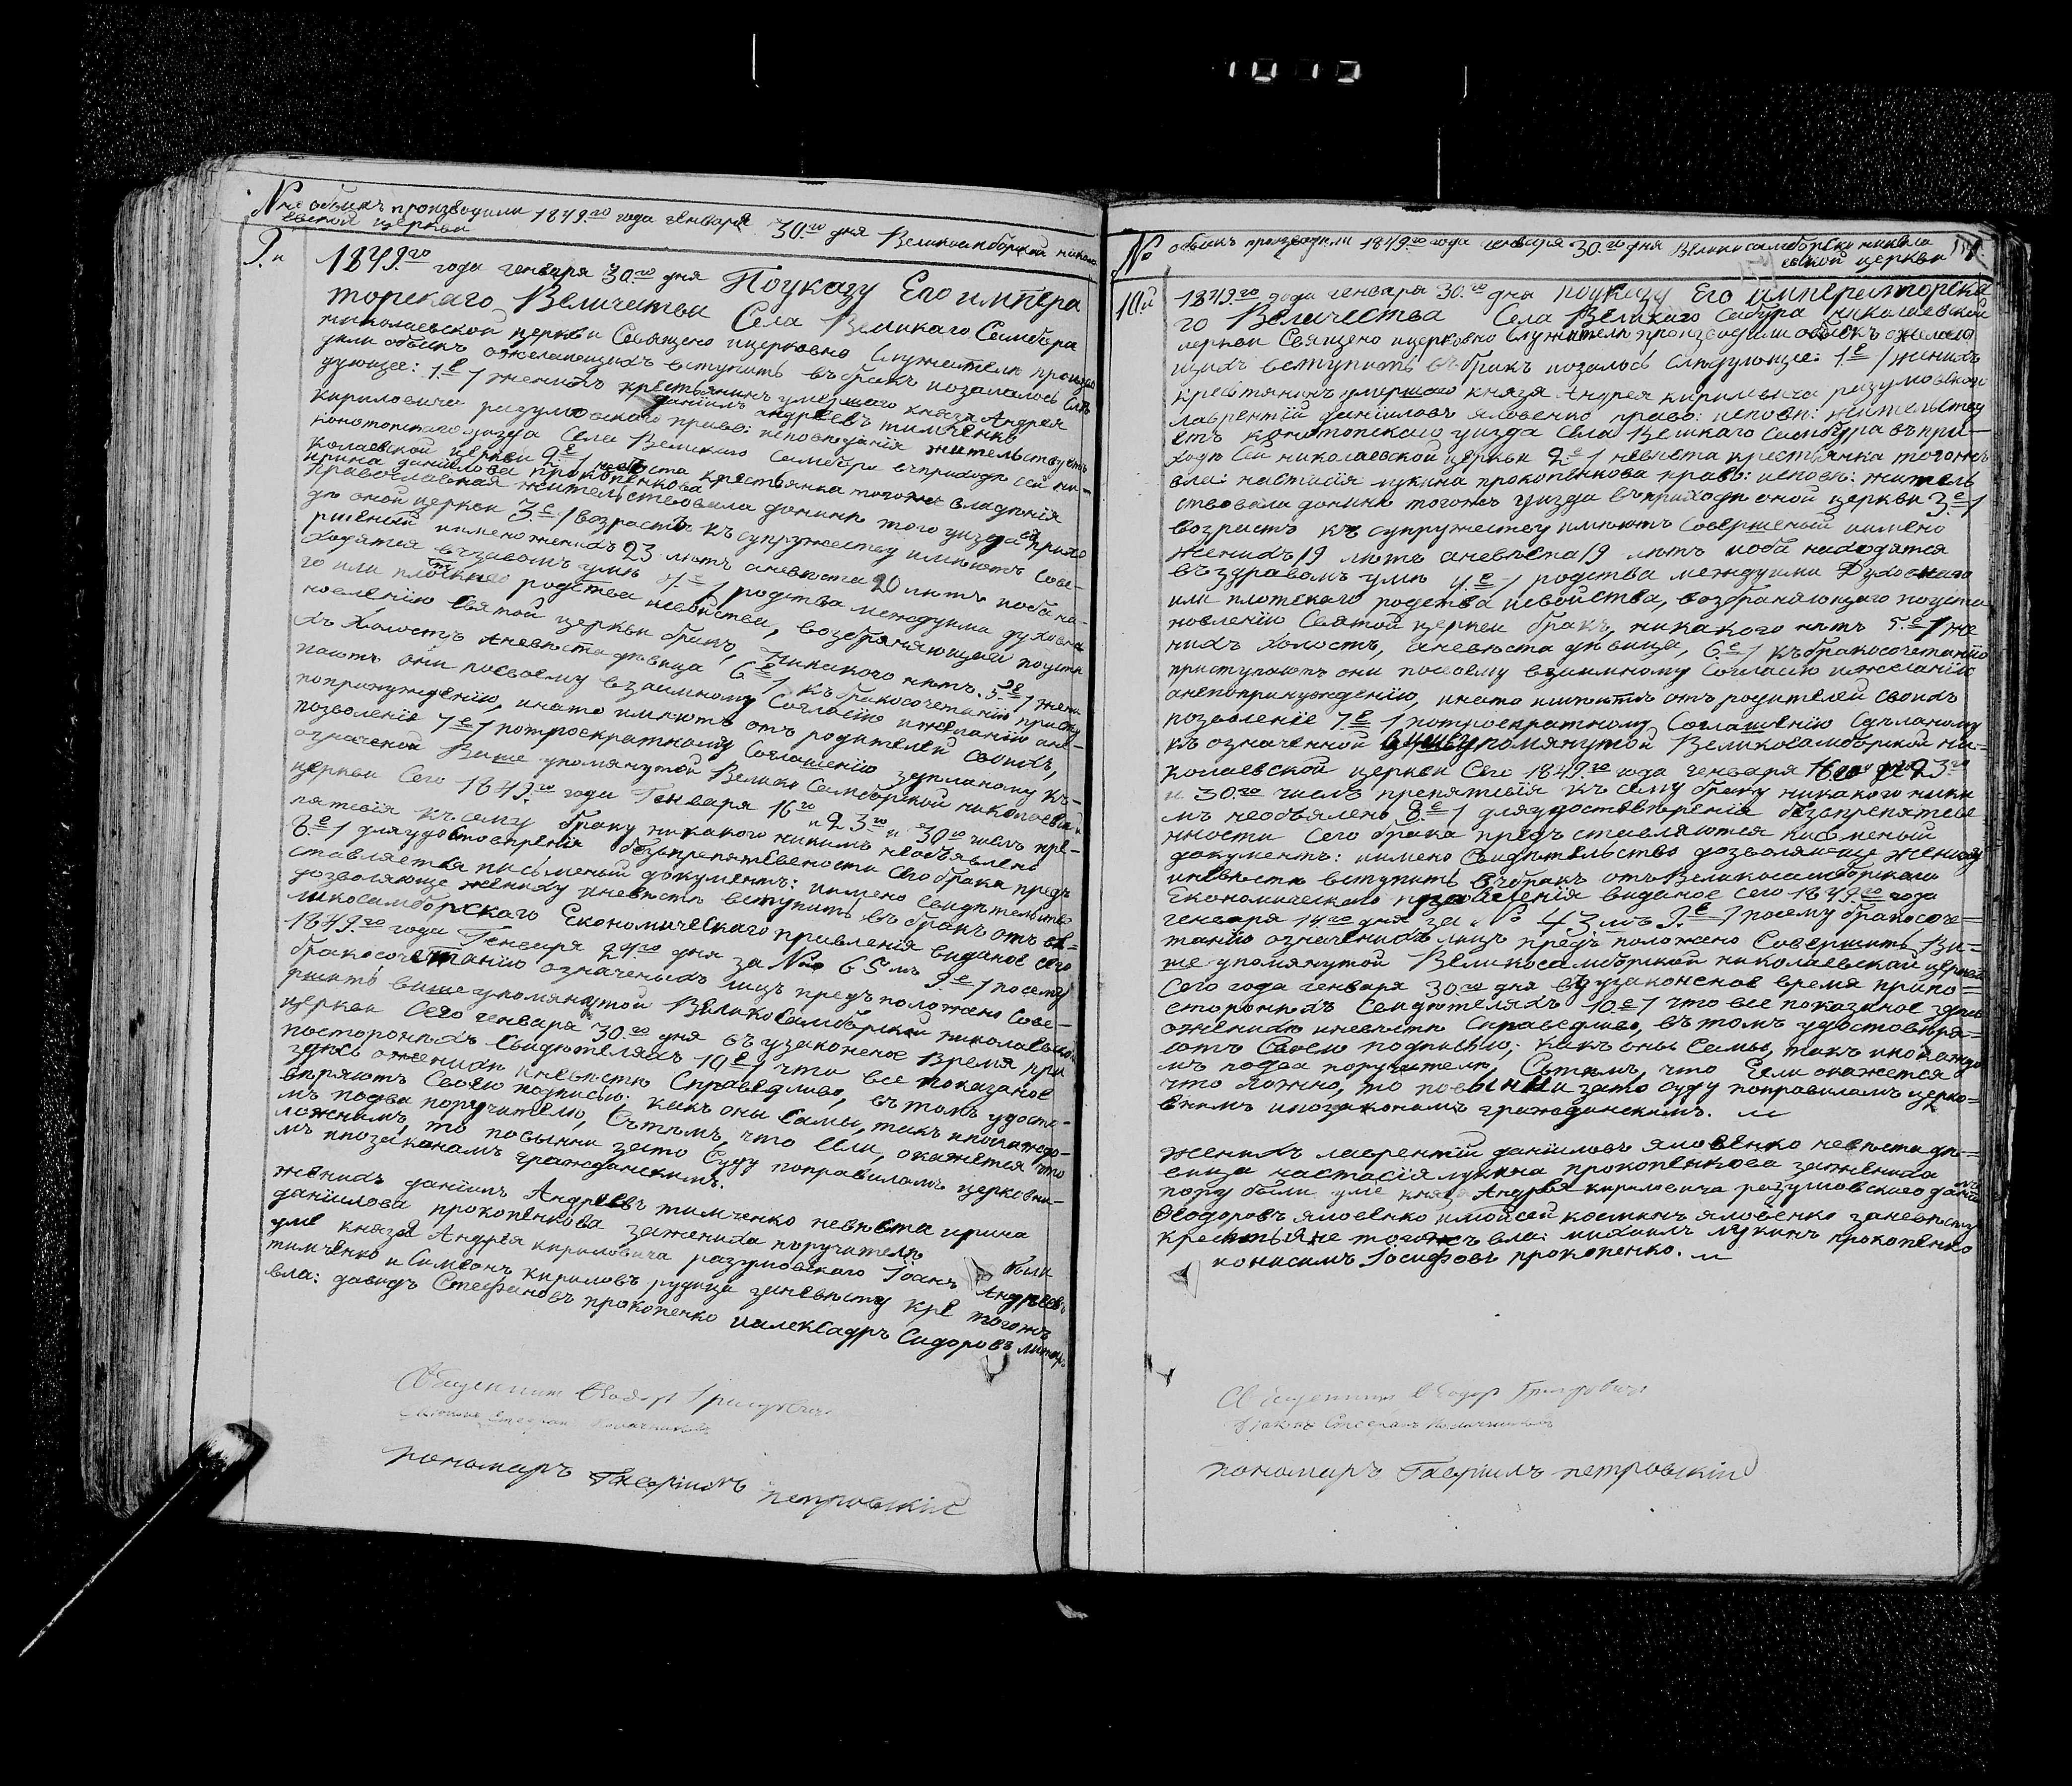 № на обыскъ производили 1849.го года генваря 30.го дня Великосамборской никола
евской церкви
9.й
1849.го года генваря 30.го дня Поуказу Его импера
торскаго Величества Села Великаго Самбора
николаевской церкви Священо ицерковно Служители произво
дили обыскъ ожелающихъ вступить въ бракъ иоказалось Слѣ
дующее: 1.е/ женихъ крестьянинъ умершаго князя Андрея
даніилъ андреевъ тимченко
кириловича разумовскаго право: исповѣданія жительствуетъ
конотопскаго уезда Села Великаго Самбора въприходѣ сей ни-
колаевской церкви 2.е/ невѣста крестьянка тогоже владенія
ирина даніилова прокопенкова
православная жительствовала донинѣ того уизда въ прихо
дѣ оной церкви 3.е/ возрастъ къ супружеству имѣютъ Сове-
ршеный имено женихъ 23 лѣтъ аневѣста 20 лѣтъ иоба на-
ходятся въздравомъ умѣ 4.е/ родства междуими духовна
го или плотскаго родства исвойства, возбраняющаго поуста
новленію Святой церкви бракъ, никакого нѣтъ. 5.е/ жени
хъ Холостъ аневѣста дѣвица 6.е/ къ бракосочетанію присту
паютъ они посвоему взаимному Согласію ижеланію ане-
попринужденію, инато имѣютъ отъ родителей своихъ,
позволеніе 7.е/ потроекратному Соглашенію здѣланому къ-
означеной Више упомянутой Велико Самборской николаевской
церкви Сего 1849.го года Генваря 16.го и 23.го и 30.го числъ пре-
пятсвія къ сему браку никакого никимъ необъявлено
8.е/ дляудостоверенія безпрепятсвености Сего брака предъ
ставляется письменый документъ: имено Свидѣтельство
дозволяюще жениху иневѣстѣ вступить въ бракъ отъ ве-
ликосамборскаго Економическаго правленія виданое сего
1849.го года Генваря 24.го дня за № 65 мъ 9.е/ посему
бракосочетанію означеныхъ лицъ предъположено Сове-
ршить вишеупомянутой Великосамборской николаевской
церкви Сего генваря 30.го дня въузаконеное время при
постороннихъ Свидѣтеляхъ 10.е/ что все показаное
здѣсь оженихѣ иневѣстѣ Справедливо, въ томъ удосто-
вѣряютъ Своею подписью: какъ они Сами, такъ ипокаждо-
мъ подва поручителю, Сътѣмъ, что если, окажется что
ложнымъ, то повынни зато Суду поправиламъ церковни-
мъ ипозаконамъ гражданскимъ.
женихъ даніилъ Андреевъ тимченко невѣста ирина
даніилова прокопенкова зажениха поручители были
уме князя Андрея кириловича разумовскаго Іоанъ Андреевъ
тимченко и Симеонъ кириловъ рудица заневѣсту кре тогожъ
вла: давидъ Стефановъ прокопенко иалексадръ Сидоровъ
Священникъ Ѳеодоръ
пономарь Гавріилъ петровскій
№ обыскъ производили 1849.го года генваря 30.го дня Великосамборской никола
евской церкви
10.й
1849.го года генваря 30.го дня поуказу Его императорска
го Величества Села Великаго Самбура николаевской
церкви Священо ицерковно Служители производили обыскъ ожелаю
щихъ вступить въбракъ иозалось Слѣдующе: 1.е/ женихъ
крестянинъ умершаго князя Андрея кириловича разумовскаго
лаврентій даніиловъ яловенко право: исповѣ: жительству
етъ конотопскаго уизда Села Великаго Самбура въпри-
ходѣ Сей николаевской церкви 2.е/ невѣста крестьянка тогожъ
вла: настасія лукина прокопенкова прав: исповѣ: житель
ствовала донинѣ тогожъ уизда въприходѣ оной церкви 3.е/
возрастъ къ супружеству имѣютъ Совершеный имено
женихъ 19 лѣтъ аневѣста 19 лѣтъ иоба находятся
въздравомъ умѣ 4.е/ родства междуими Духовнаго
или плотскаго родства исвойства, возбраняющаго поуста
новленію Святой церкви бракъ, никакого нѣтъ 5.е/ же
нихъ холостъ, аневѣста дѣвица, 6.е/ къбракосочетанію
приступаютъ они посвоему взаимному Согласію ижеланію
анепопринужденію, инато имѣютъ отъ родителей своихъ
позволеніе 7.е/ потроекратному Соглашенію Сдѣланому
къ означенной вишеупомянутой Великосамборской ни-
колаевской церкви Сего 1849.го года генваря 16.го 23.го
и 30.го числъ препятвія къ сему браку никакого ники
мъ необъялено 8.е/ дляудостоверенія безпрепятсве
нности Сего брака предъ ставляются письменый
документъ: имено Свидѣтельство дозволяюще жениху
иневѣстѣ вступить въбракъ отъ Великосамборскаго
Економическаго правленія виданое сего 1849.го года
генваря 14.го дня за № 43 мъ 9.е/ посему бракосоче=
танію означеныхъ лицъ предъ положено Совершить Ви-
ше упомянутой Великосамборской николаевской церкви
Сего года генваря 30.го дня въузаконеное время припо=
стороннихъ Свидѣтеляхъ 10.е/ что все показаное здѣсь
оженихѣ иневѣстѣ Справедливо, въ томъ удостовѣря=
ютъ Своею подписью; какъ они Сами, такъ ипокаждо
мъ подва поручителю, Сътѣмъ, что Если окажется
что ложно, то повынни зато суду поправиламъ церко=
внимъ ипозаконамъ гражданскимъ.
женихъ лаврентій даніиловъ яловенко невѣста дѣ=
вица настасія лукина прокопенкова зажениха
пору были уме князя Андрея кириловича разумовскаго даніилъ
Ѳеодоровъ яловенко имойсей костинъ яловенко заневѣсту
крестьяне тогожъ вла: михаилъ лукинъ прокопенко
ионисимъ Іосифовъ прокопенко.
Священникъ Ѳеодоръ
Діаконъ Стефанъ
пономарь Гавріилъ петровскій